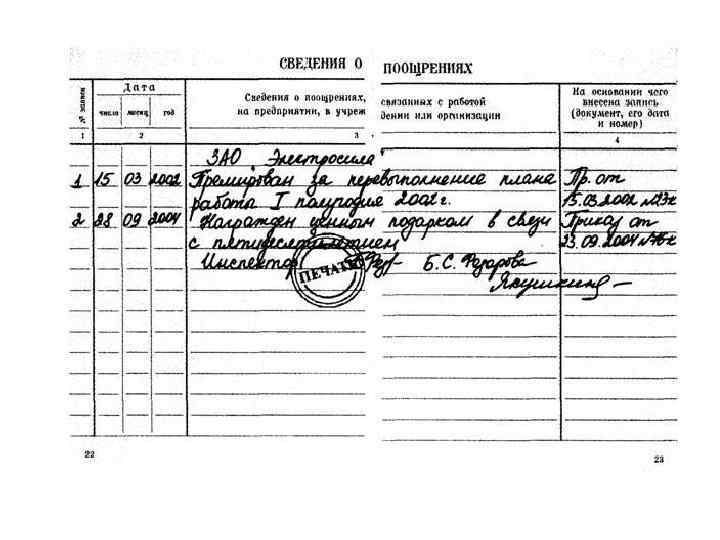 СВЕДЕНИЯ О ПООЩРЕНИЯХ
№ записи
Дата
число месяц год
Сведения о поощрениях, связанных с работой
на предприятии, в учреж дении или организации
На основании чего
внесена запись
(документ, его дата
и номер)
1 2 3 4
ЗАО „Электросила"
1 15 03 2002 Премирован за перевыполнение плана Пр. от
работа I полугодия 2002 г. 15.03.2002
2 28 09 2004 Награжден ценным подарком в связи Приказ от
с пятидесятилетием 23.09.2004
Инспектор Б.С. Фазарова
ПЕЧАТЬ
Якушкина
22 23